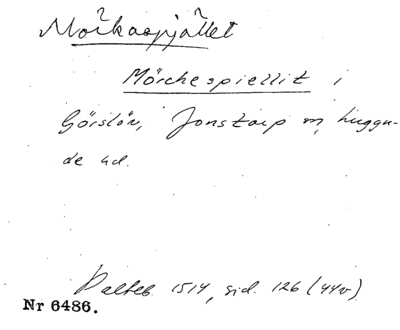 Morkaspjället
Mörchespiellit i
Görslöv, Jonstorp sn, Luggu-
de hd.
Palteb. 1514, sid. 126 (44v)
Nr 6486.